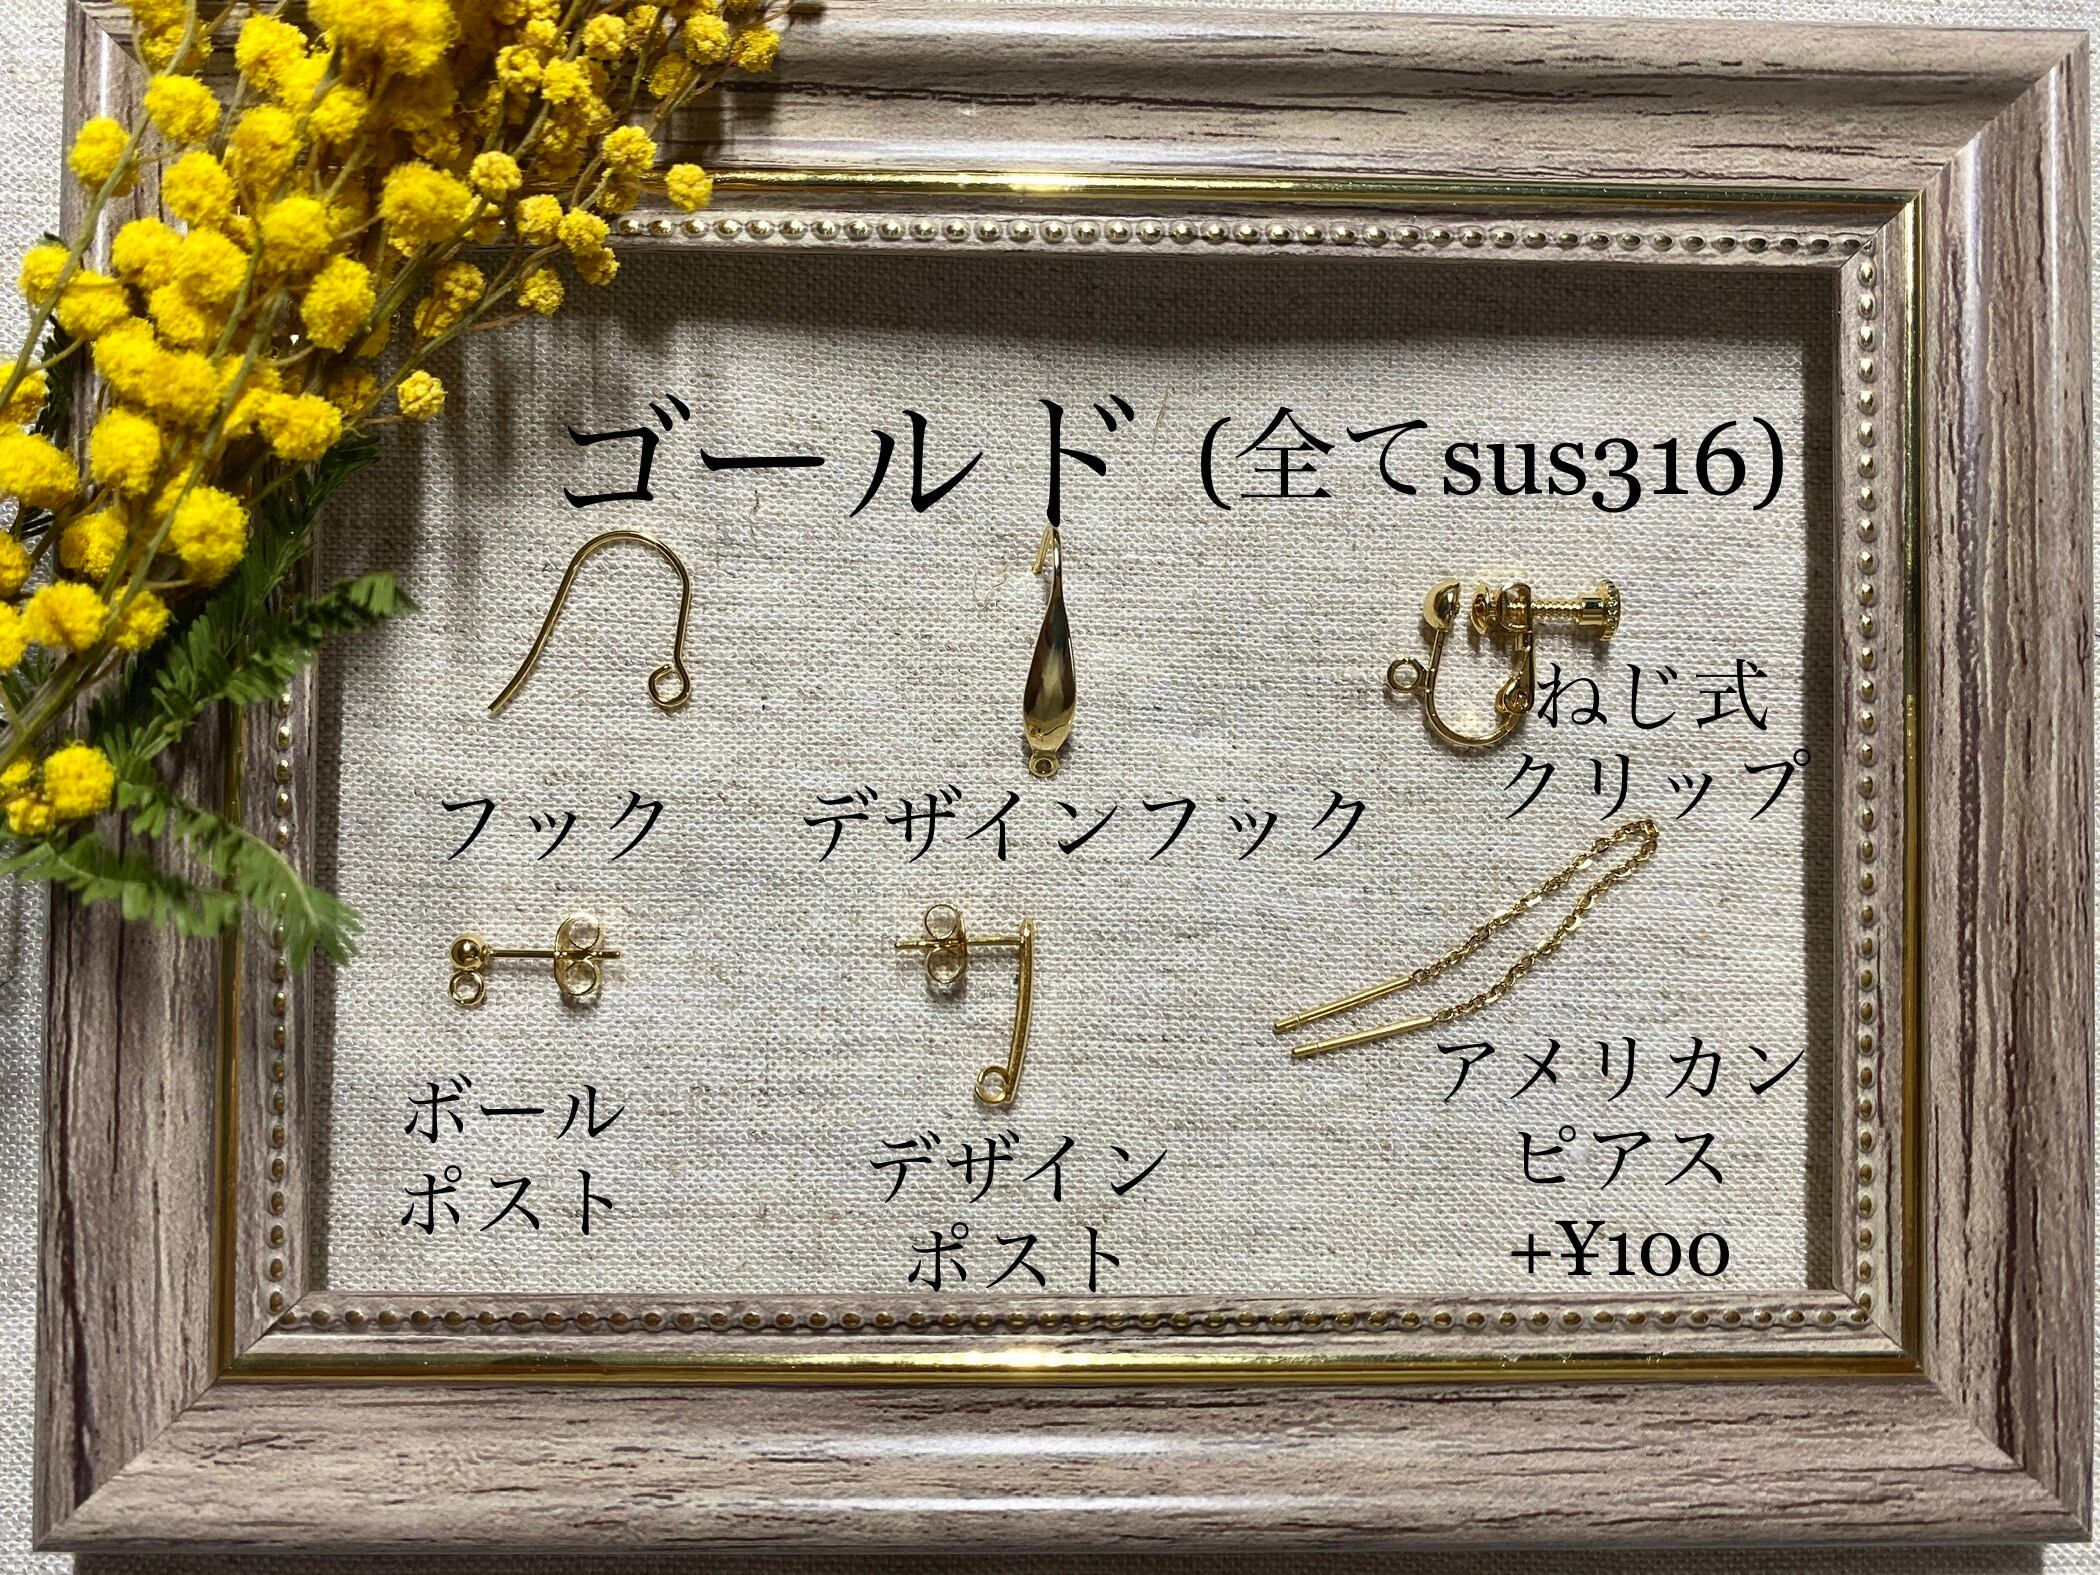 ゴールド (全てsus316)
フック
デザインフック
ねじ式
クリップ
ボール
ポスト
デザイン
ポスト
アメリカン
ピアス
+¥100